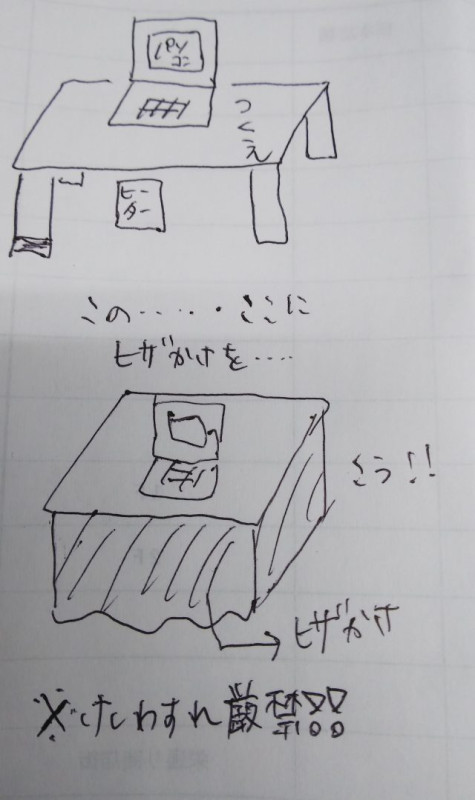 パソ
コン
つくえ
ヒー
ター
この‥‥‥ここに
ヒザかけを‥‥
こう!!
ヒザかけ
※けしわすれ厳禁!!!